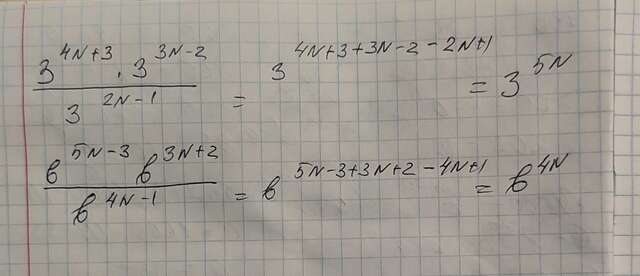 3^{4N+3} · 3^{3N-2} / 3^{2N-1} = 3^{4N+3+3N-2-2N+1} = 3^{5N}
b^{5N-3} b^{3N+2} / b^{4N-1} = b^{5N-3+3N+2-4N+1} = b^{4N}